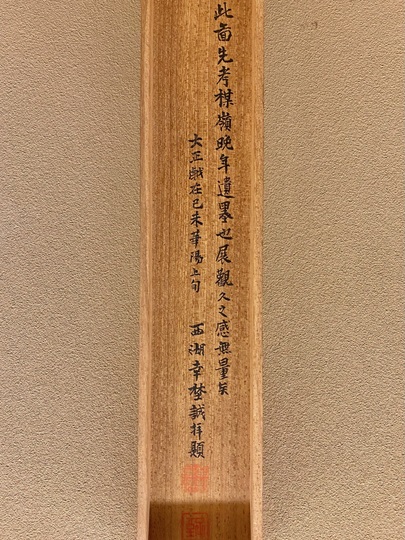 此啚先考楳嶺晩年遺墨也展觀久之感無量矣
大正歳在己未華陽上旬 西湖幸埜誠拝題